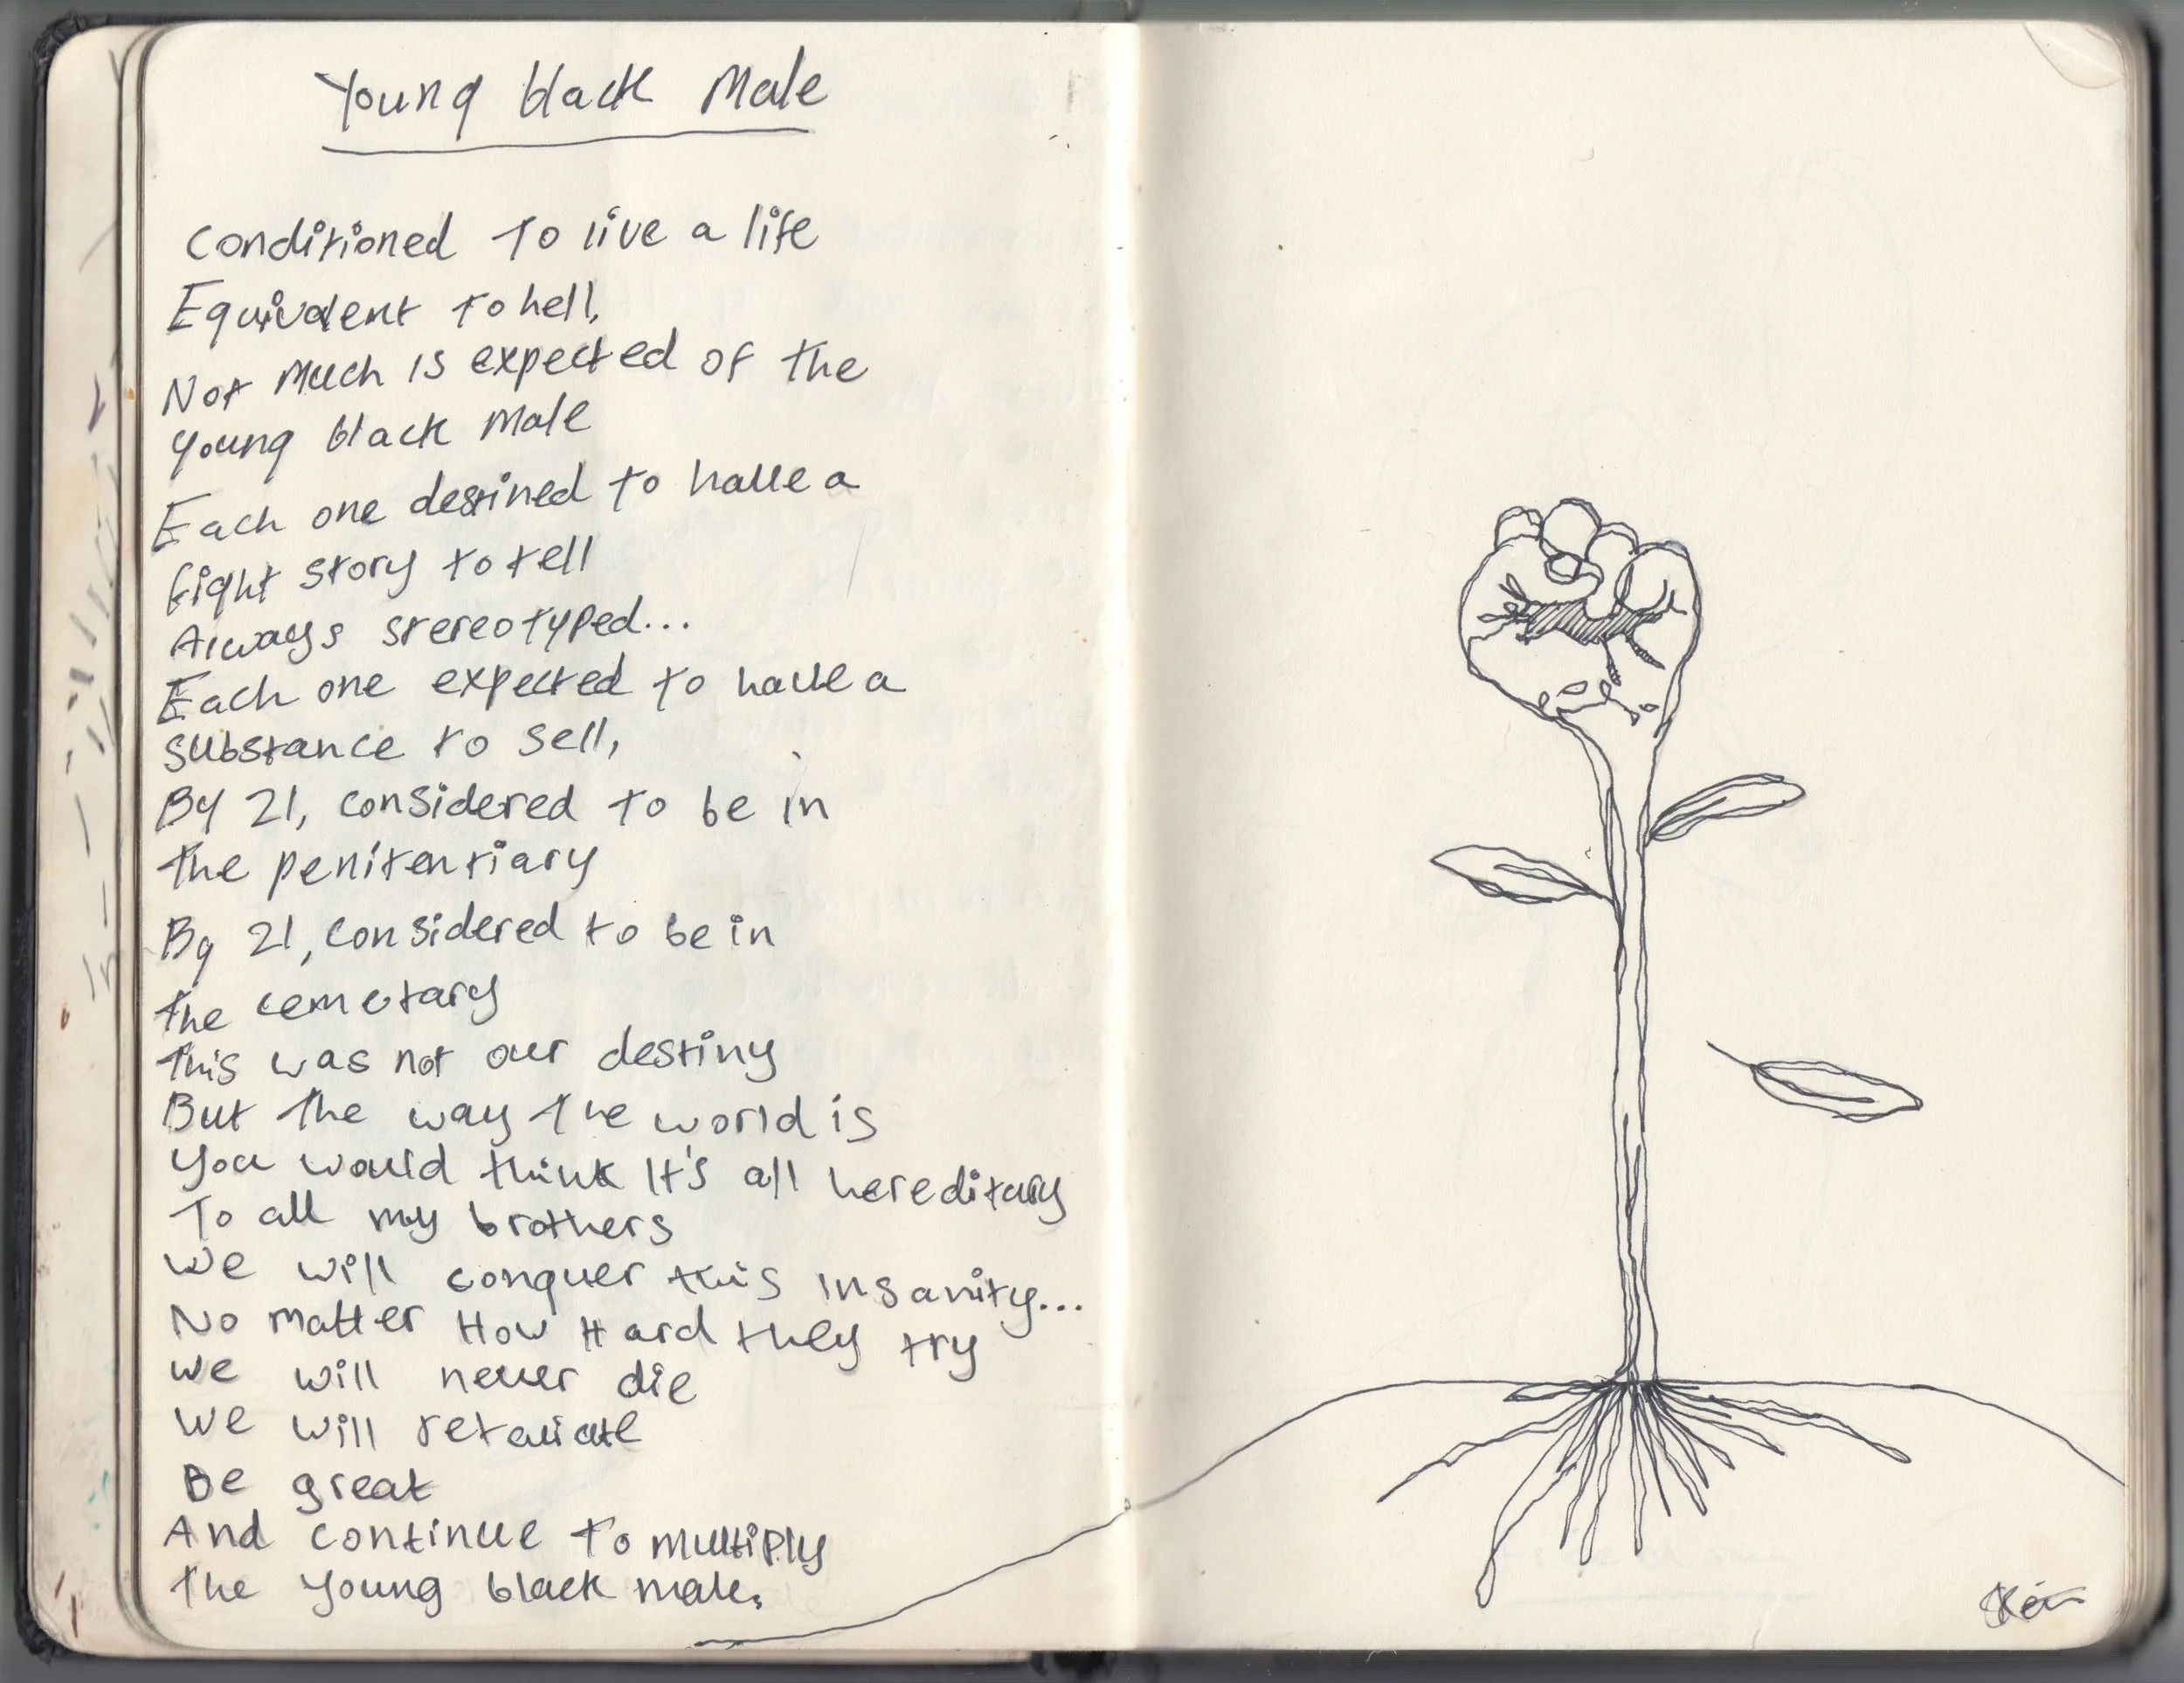 Young black Male
Conditioned To live a life
Equivalent to hell,
Not Much is expected of the
young black Male
Each one destined to have a
fight story to tell
Always stereotyped...
Each one expected to have a
substance to sell,
By 21, considered to be in
the penitentiary
By 21, considered to be in
the cemetary
this was not our destiny
But the way the world is
you would think It's all hereditary
To all my brothers
we will conquer this insanity...
No matter How Hard they try
we will never die
we will retaliate
Be great
And continue To multiply
the young black male.